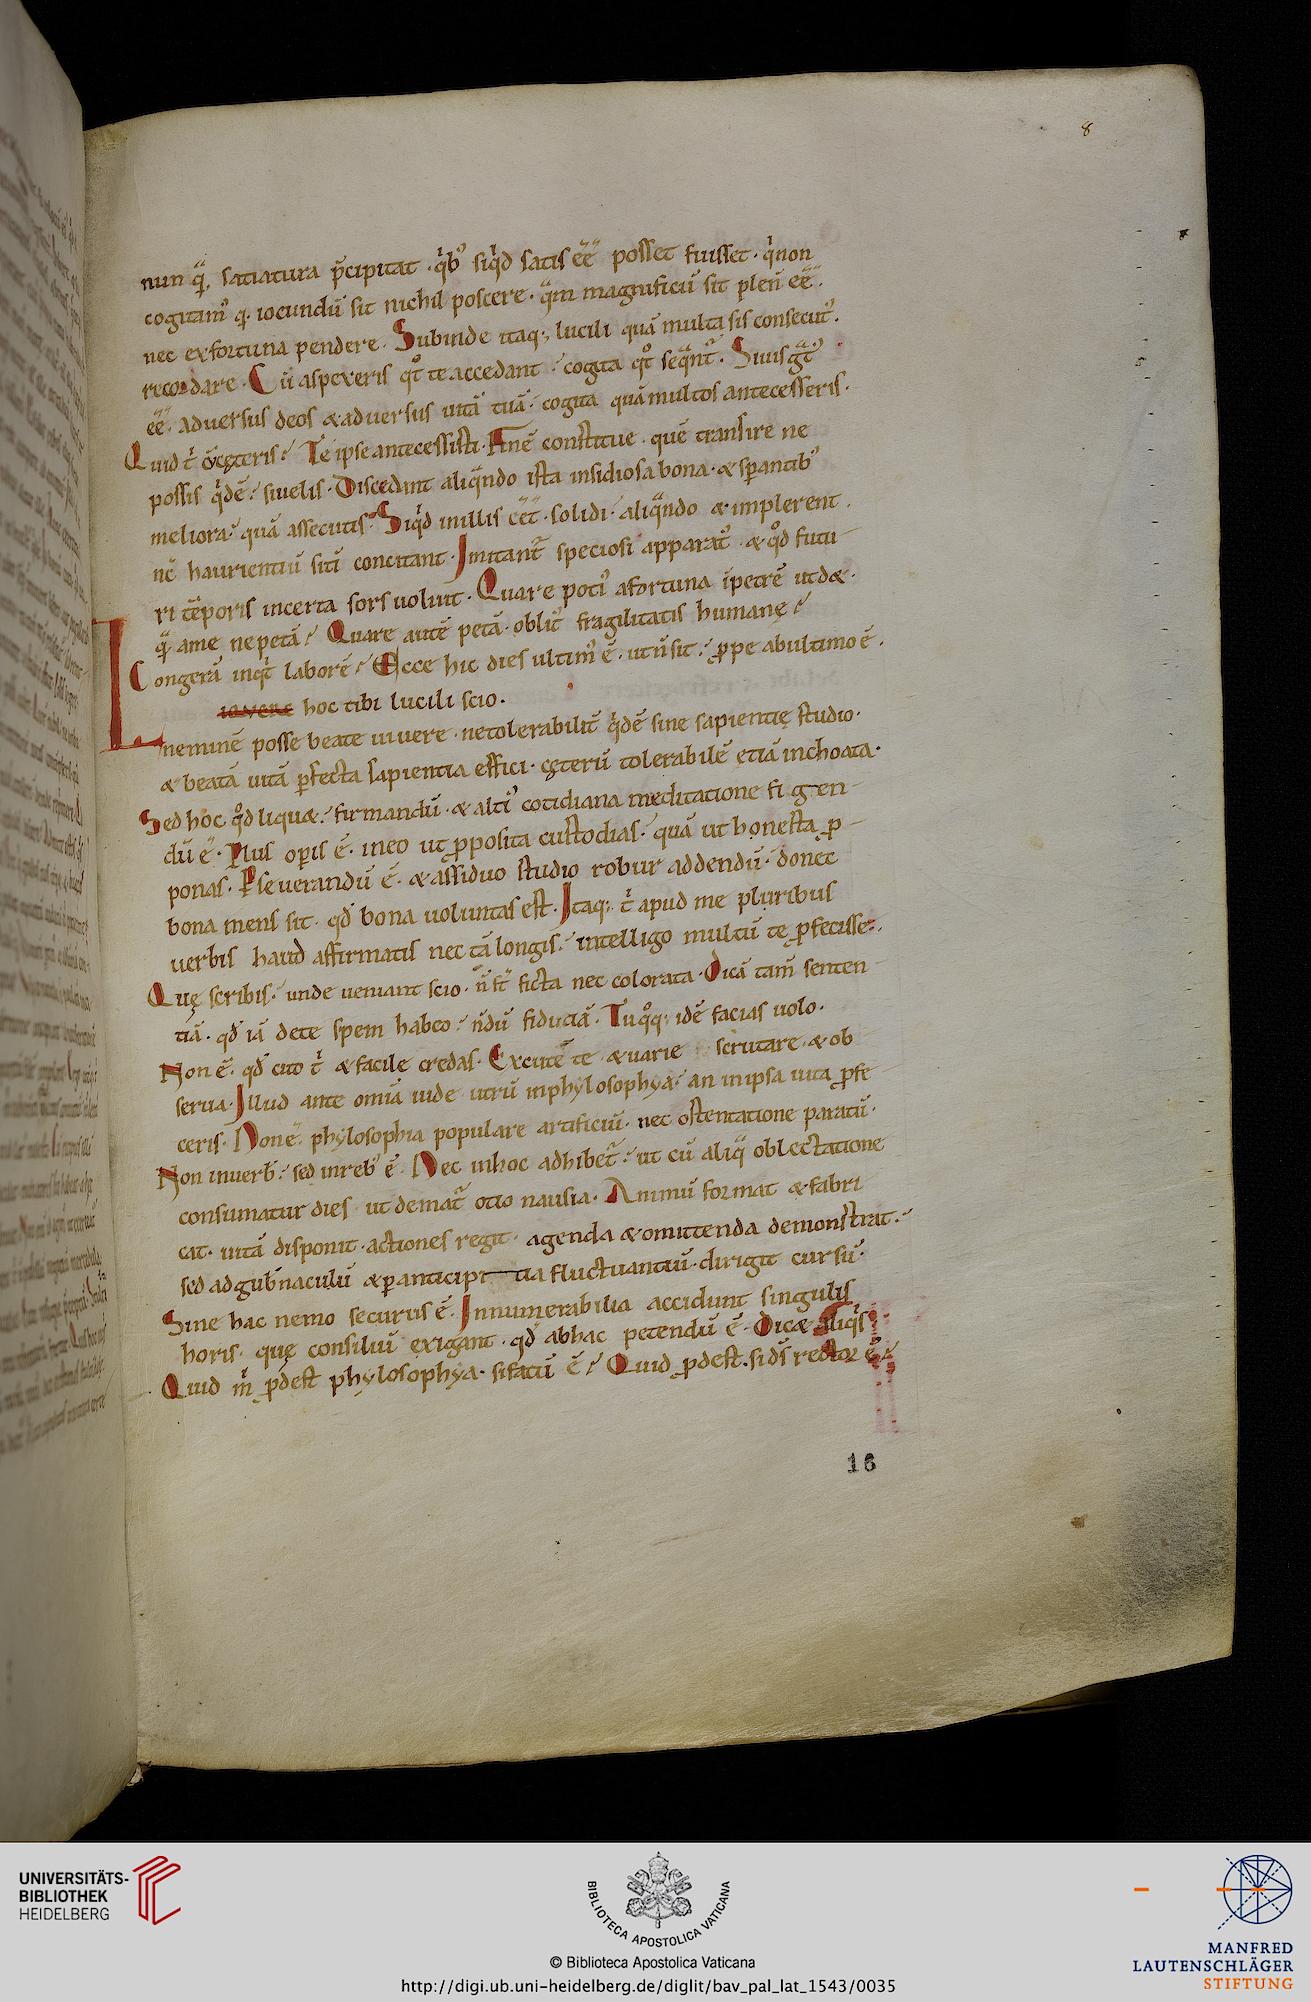 8
nun q̃, satiatura p̃cipitat · q̇bꝰ siq̇d satis eẽ posset fuisset · q̇non
cogitamꝰ q̃ iocundũ sit nichil poscere · q̃m magnificũ sit plenũ eẽ ·
nec exfortuna pendere · Subinde itaq; lucili quã multa sis consecutꝰ ·
recordare · Cũ aspexeris qͦt te accedant · cogita qͦt seqͣntᷣ · Siuis gͣtꝰ
eẽ aduersus deos & aduersus uitã tuã · cogita quãmultos antecesseris ·
Quid t᷑ cũ cęteris? Te ipse antecessisti · Finẽ constitue · quẽ transire ne
possis q̇dẽ siuelis · Discedant aliqͣndo ista insidiosa bona · & sꝑantibꝰ
meliora quã assecutis · Siq̇d inillis eẽt solidi aliqͣndo & implerent ·
nc̃ haurientiũ sitĩ concitant · Imitantᷣ speciosi apparatꝰ · & qͦd futu
ri tẽporis incerta sors uoluit · Quare potiꝰ afortuna ĩpetrẽ utdet ·
q̃ ame nepetã? Quare autẽ petã · oblitꝰ fragilitatis humanę?
Congerã inq̇t laborẽ? Ecce hic dies ultimꝰ ẽ · utñsit ꝓpe abultimo ẽ ·
L
hoc tibi lucili scio ·
neminẽ posse beate uiuere · netolerabilitᷣ q̇dẽ sine sapientię studio ·
& beatã uitã ꝑfecta sapientia effici · cęterũ tolerabilẽ etiã inchoata ·
Sed hoc qͦd liquet firmandũ · & altiꝰ cotidiana meditatione figen
dũ ẽ · Plus oꝑis ẽ · ineo ut ꝓposita custodias quã ut honesta ꝓ
ponas · Ꝑseuerandũ ẽ · & assiduo studio robur addendũ donec
bona mens sit · qd̃ bona uoluntas est · Itaq; t᷑ apud me pluribus
uerbis haud affirmatis nec tã longis intelligo multũ te ꝓfecisse ·
Quę scribis unde ueniant scio · ñ st̃ ficta nec colorata · Dicã tam̃ senten
tiã · qd̃ iã dete spem habeo ñdũ fiduciã · Tu qͦq; idẽ facias uolo ·
Non ẽ · qd̃ cito t᷑ & facile credas · Excute te & uarie scrutare · & ob
serua · Illud ante omĩa uide utrũ inphylosophya an inipsa uita ꝓfe
ceris · Non ẽ phylosophia populare artificiũ nec ostentatione paratũ ·
Non inuerb̃ sed inreb̃ ẽ · Nec inhoc adhibetᷣ ut cũ aliqͣ oblectatione
consumatur dies ut dematᷣ otio nausia · Animũ format & fabri
cat · uitã disponit · actiones regit · agenda & omittenda demonstrat ·
sed ad gub̃naculũ & ꝑ anticipitia fluctuantiũ · dirigit cursũ ·
Sine hac nemo securus ẽ · Innumerabilia accidunt singulis
horis · quę consiliũ exigant · qd̃ abhac petendũ ẽ · Dicet aliq̇s
Quid m̃ ꝓdest phylosophya · sifatũ ẽ? Quid ꝓdest · sids̃ rector ẽ?
16
UNIVERSITÄTS-
BIBLIOTHEK
HEIDELBERG
BIBLIOTECA APOSTOLICA VATICANA
© Biblioteca Apostolica Vaticana
http://digi.ub.uni-heidelberg.de/diglit/bav_pal_lat_1543/0035
MANFRED
LAUTENSCHLÄGER
STIFTUNG